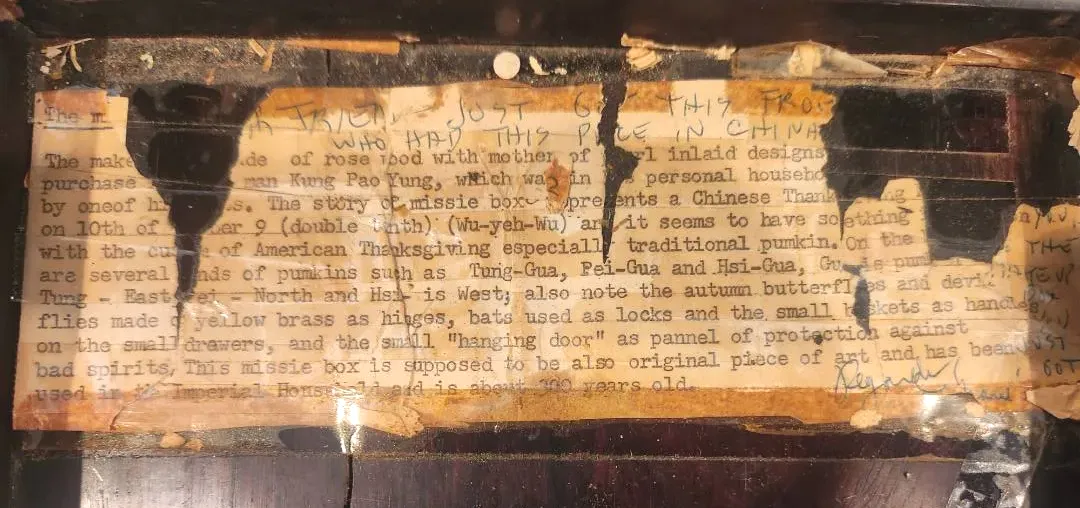 The m
JUST THIS FRO
WHO HAD THIS IN CHINA
The make de of rose wood with mother of rl inlaid designs
purchase man Kung Pao Yung, which was in personal househo
by oneof hi s. The story of missie box represents a Chinese Thank g
on 10th of ber 9 (double tenth) (Wu-yeh-Wu) an it seems to have something
with the cu of American Thanksgiving especially traditional pumkin. On the
are several nds of pumkins such as Tung-Gua, Pei-Gua and Hsi-Gua, Gu is pum
Tung - East, Pei - North and Hsi is West; also note the autumn butterflies and devil
flies made of yellow brass as hinges, bats used as locks and the small baskets as handles
on the small drawers, and the small "hanging door" as pannel of protection against
bad spirits, This missie box is supposed to be also original piece of art and has been
used in the Imperial Household and is about 300 years old.
Regards
THE
GOT